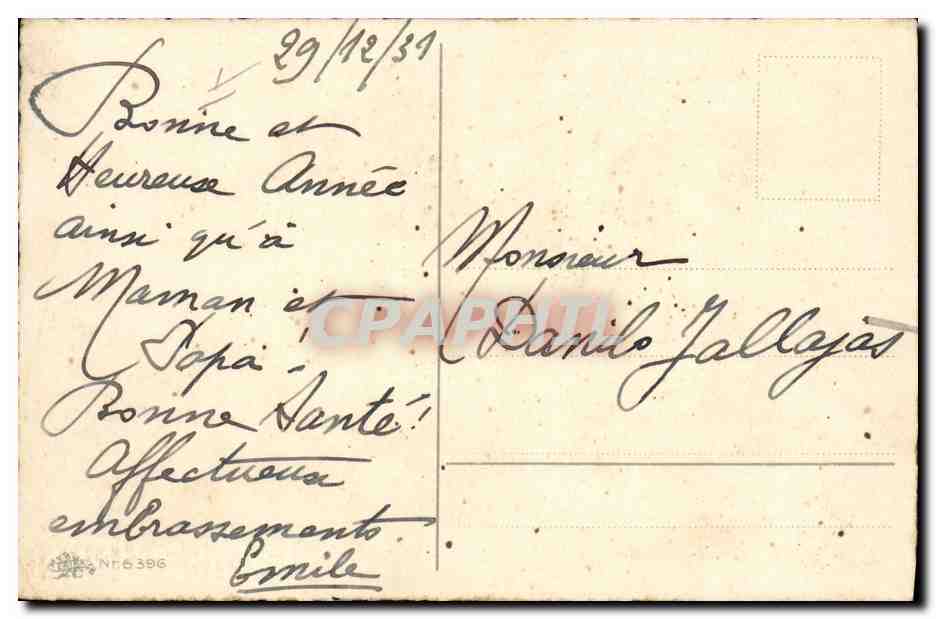 29/12/31
Bonne et
Heureuse Année
ainsi qu'à
Maman et
Papa!
Bonne Santé!
Affectueux
embrassements.
Emile
Nr. 6396
Monsieur
Danilo Jallajas
CPAPHIL